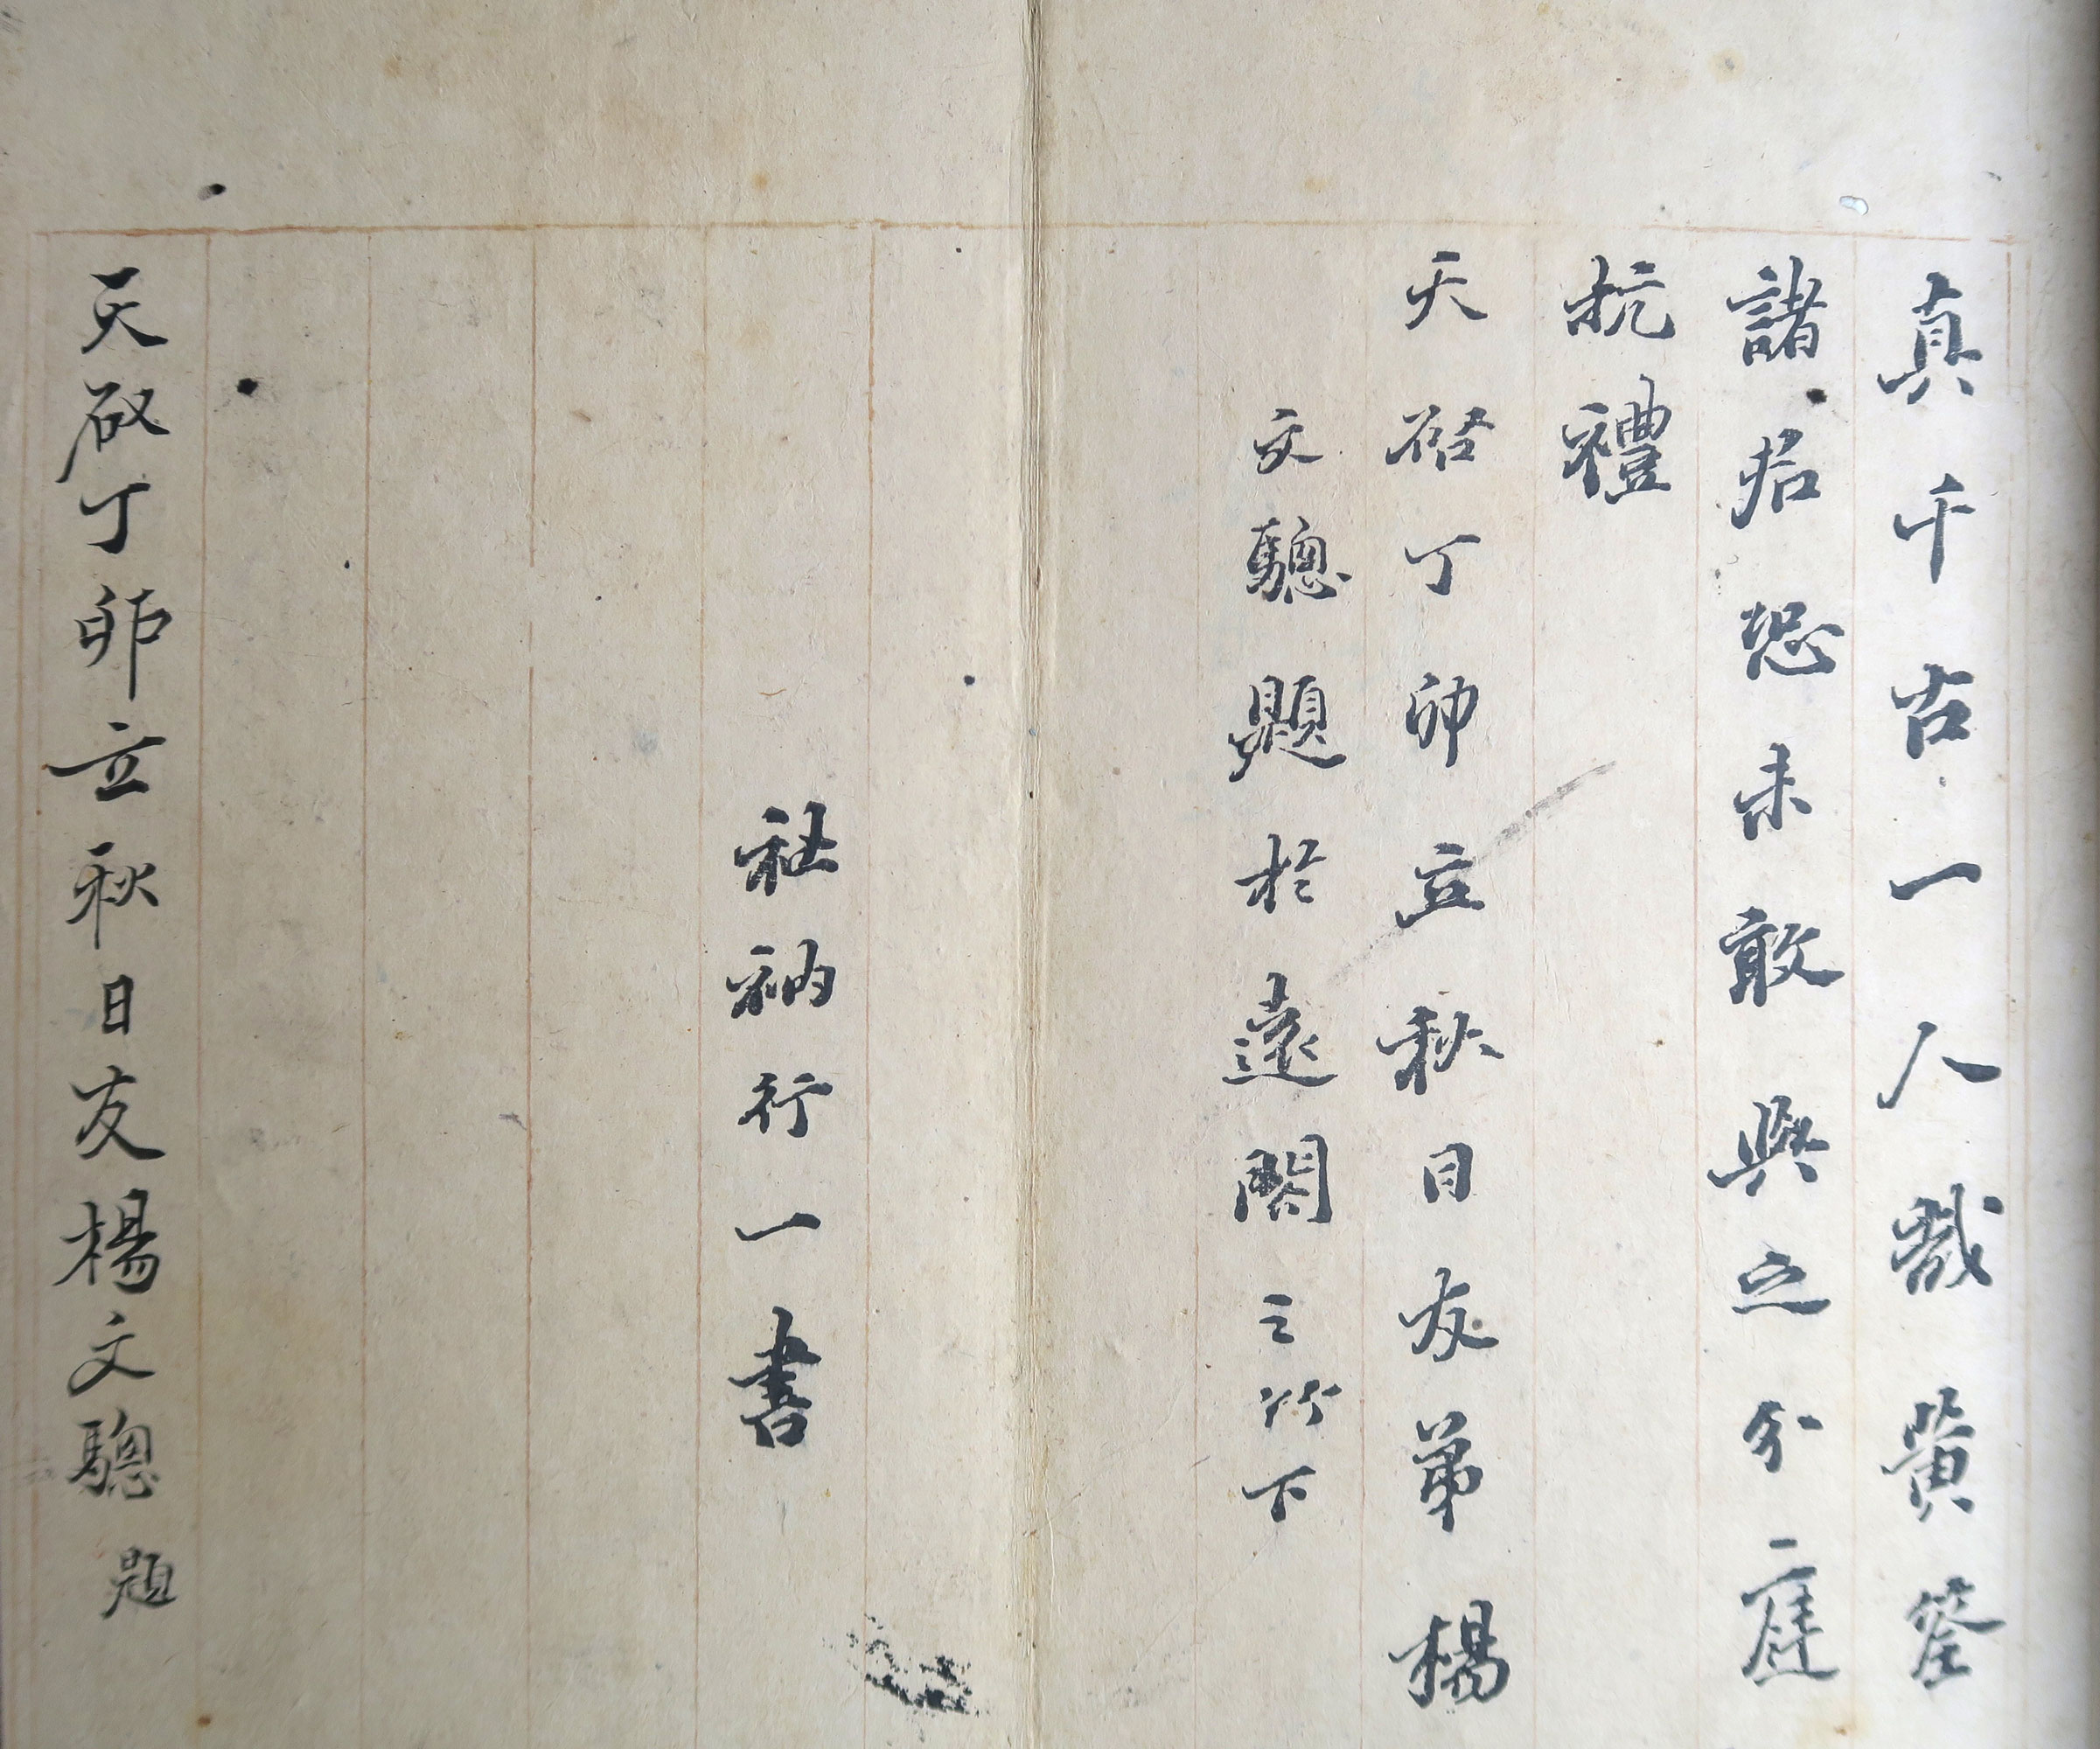 真千古一人哉黃筌
諸君恐未敢與之分庭
抗禮
天啓丁卯立秋日友弟楊
文驄題於遠閣之竹下
社衲行一書
天啟丁卯立秋日友楊文驄題